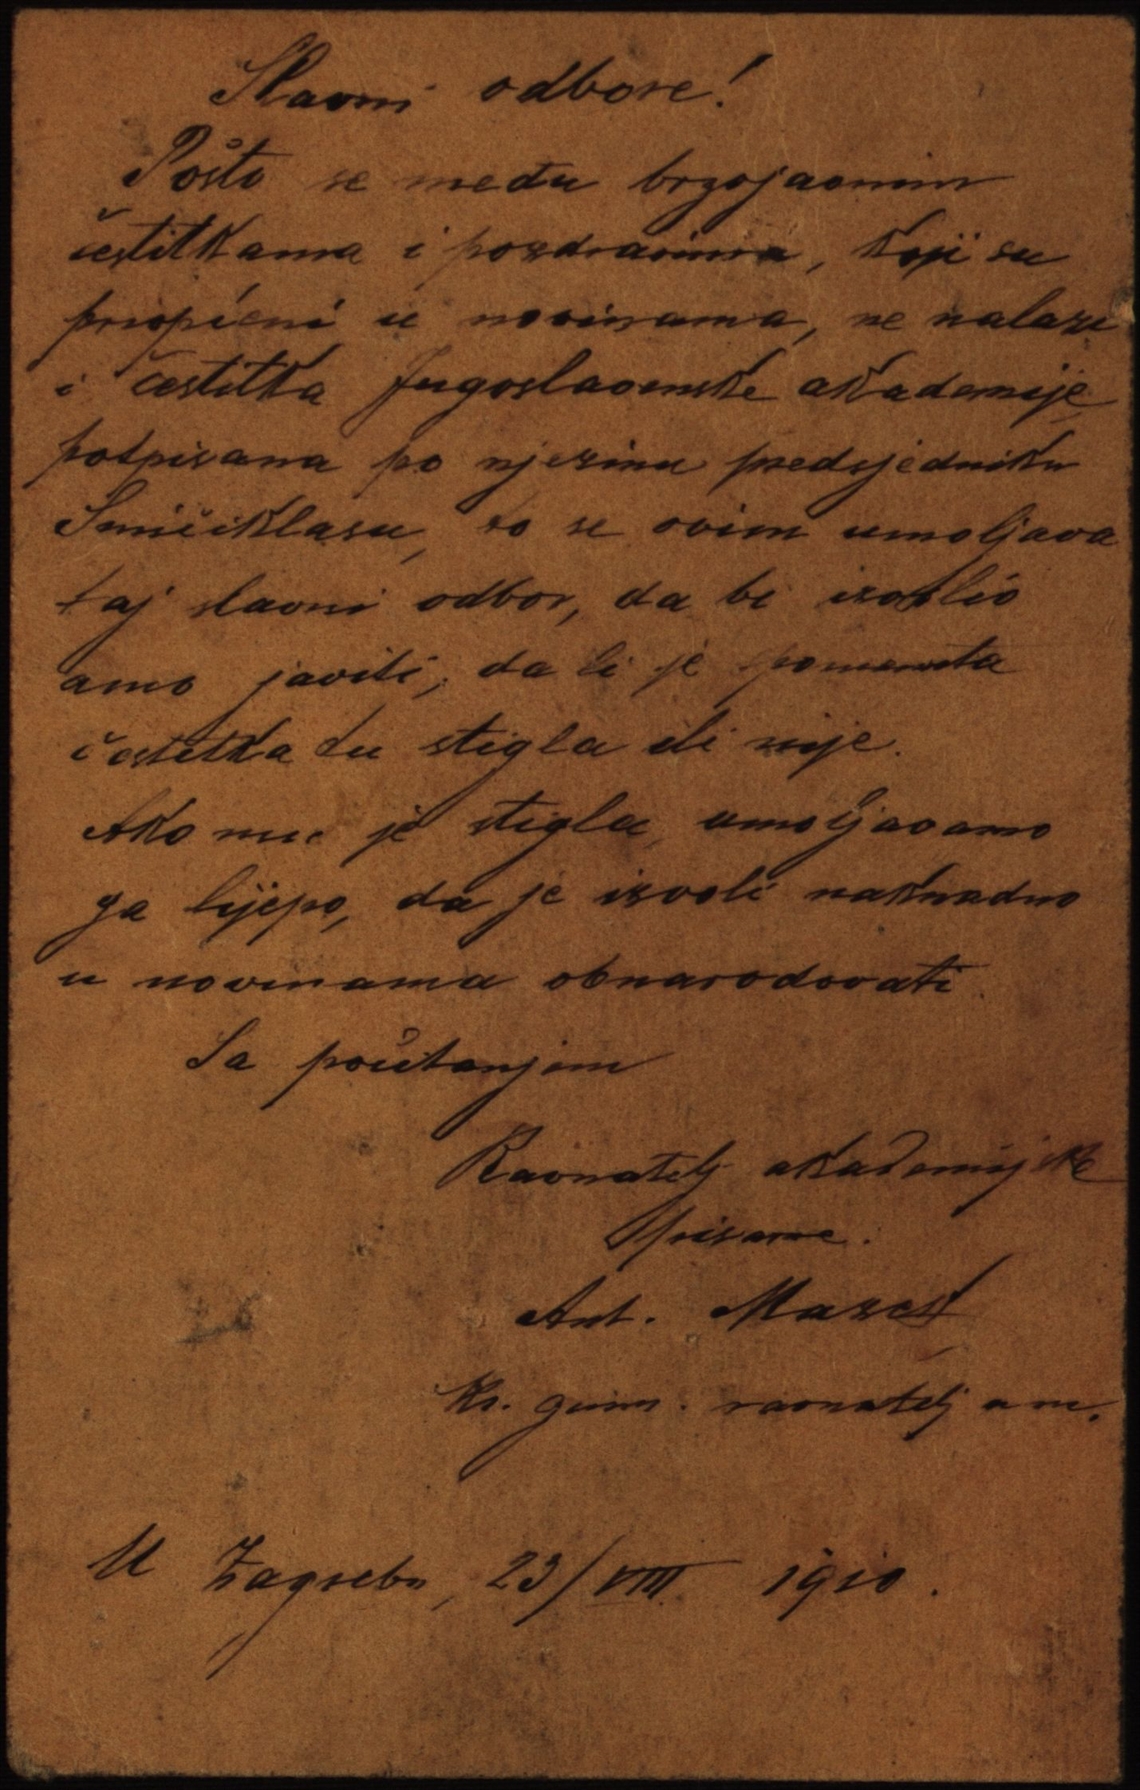 Slavni odbore!
Pošto se među brzojavnim
čestitkama i pozdravima, koji su
priopćeni u novinama, ne nalazi
i čestitka Jugoslavenske akademije
potpisana po njezinu predsjedniku
Smičiklasu, to se ovim umoljava
taj slavni odbor, da bi izvolio
amo javiti, da li je pomenuta
čestitka tu stigla ili nije.
Ako mu je stigla, umoljavamo
ga lijepo, da je izvoli naknadno
u novinama obnarodovati.
Sa počitanjem
Ravnatelj akademijske
pisarne.
Ant.
Kr. gimn. ravnatelj u m.
U Zagrebu, 23/VIII. 1910.